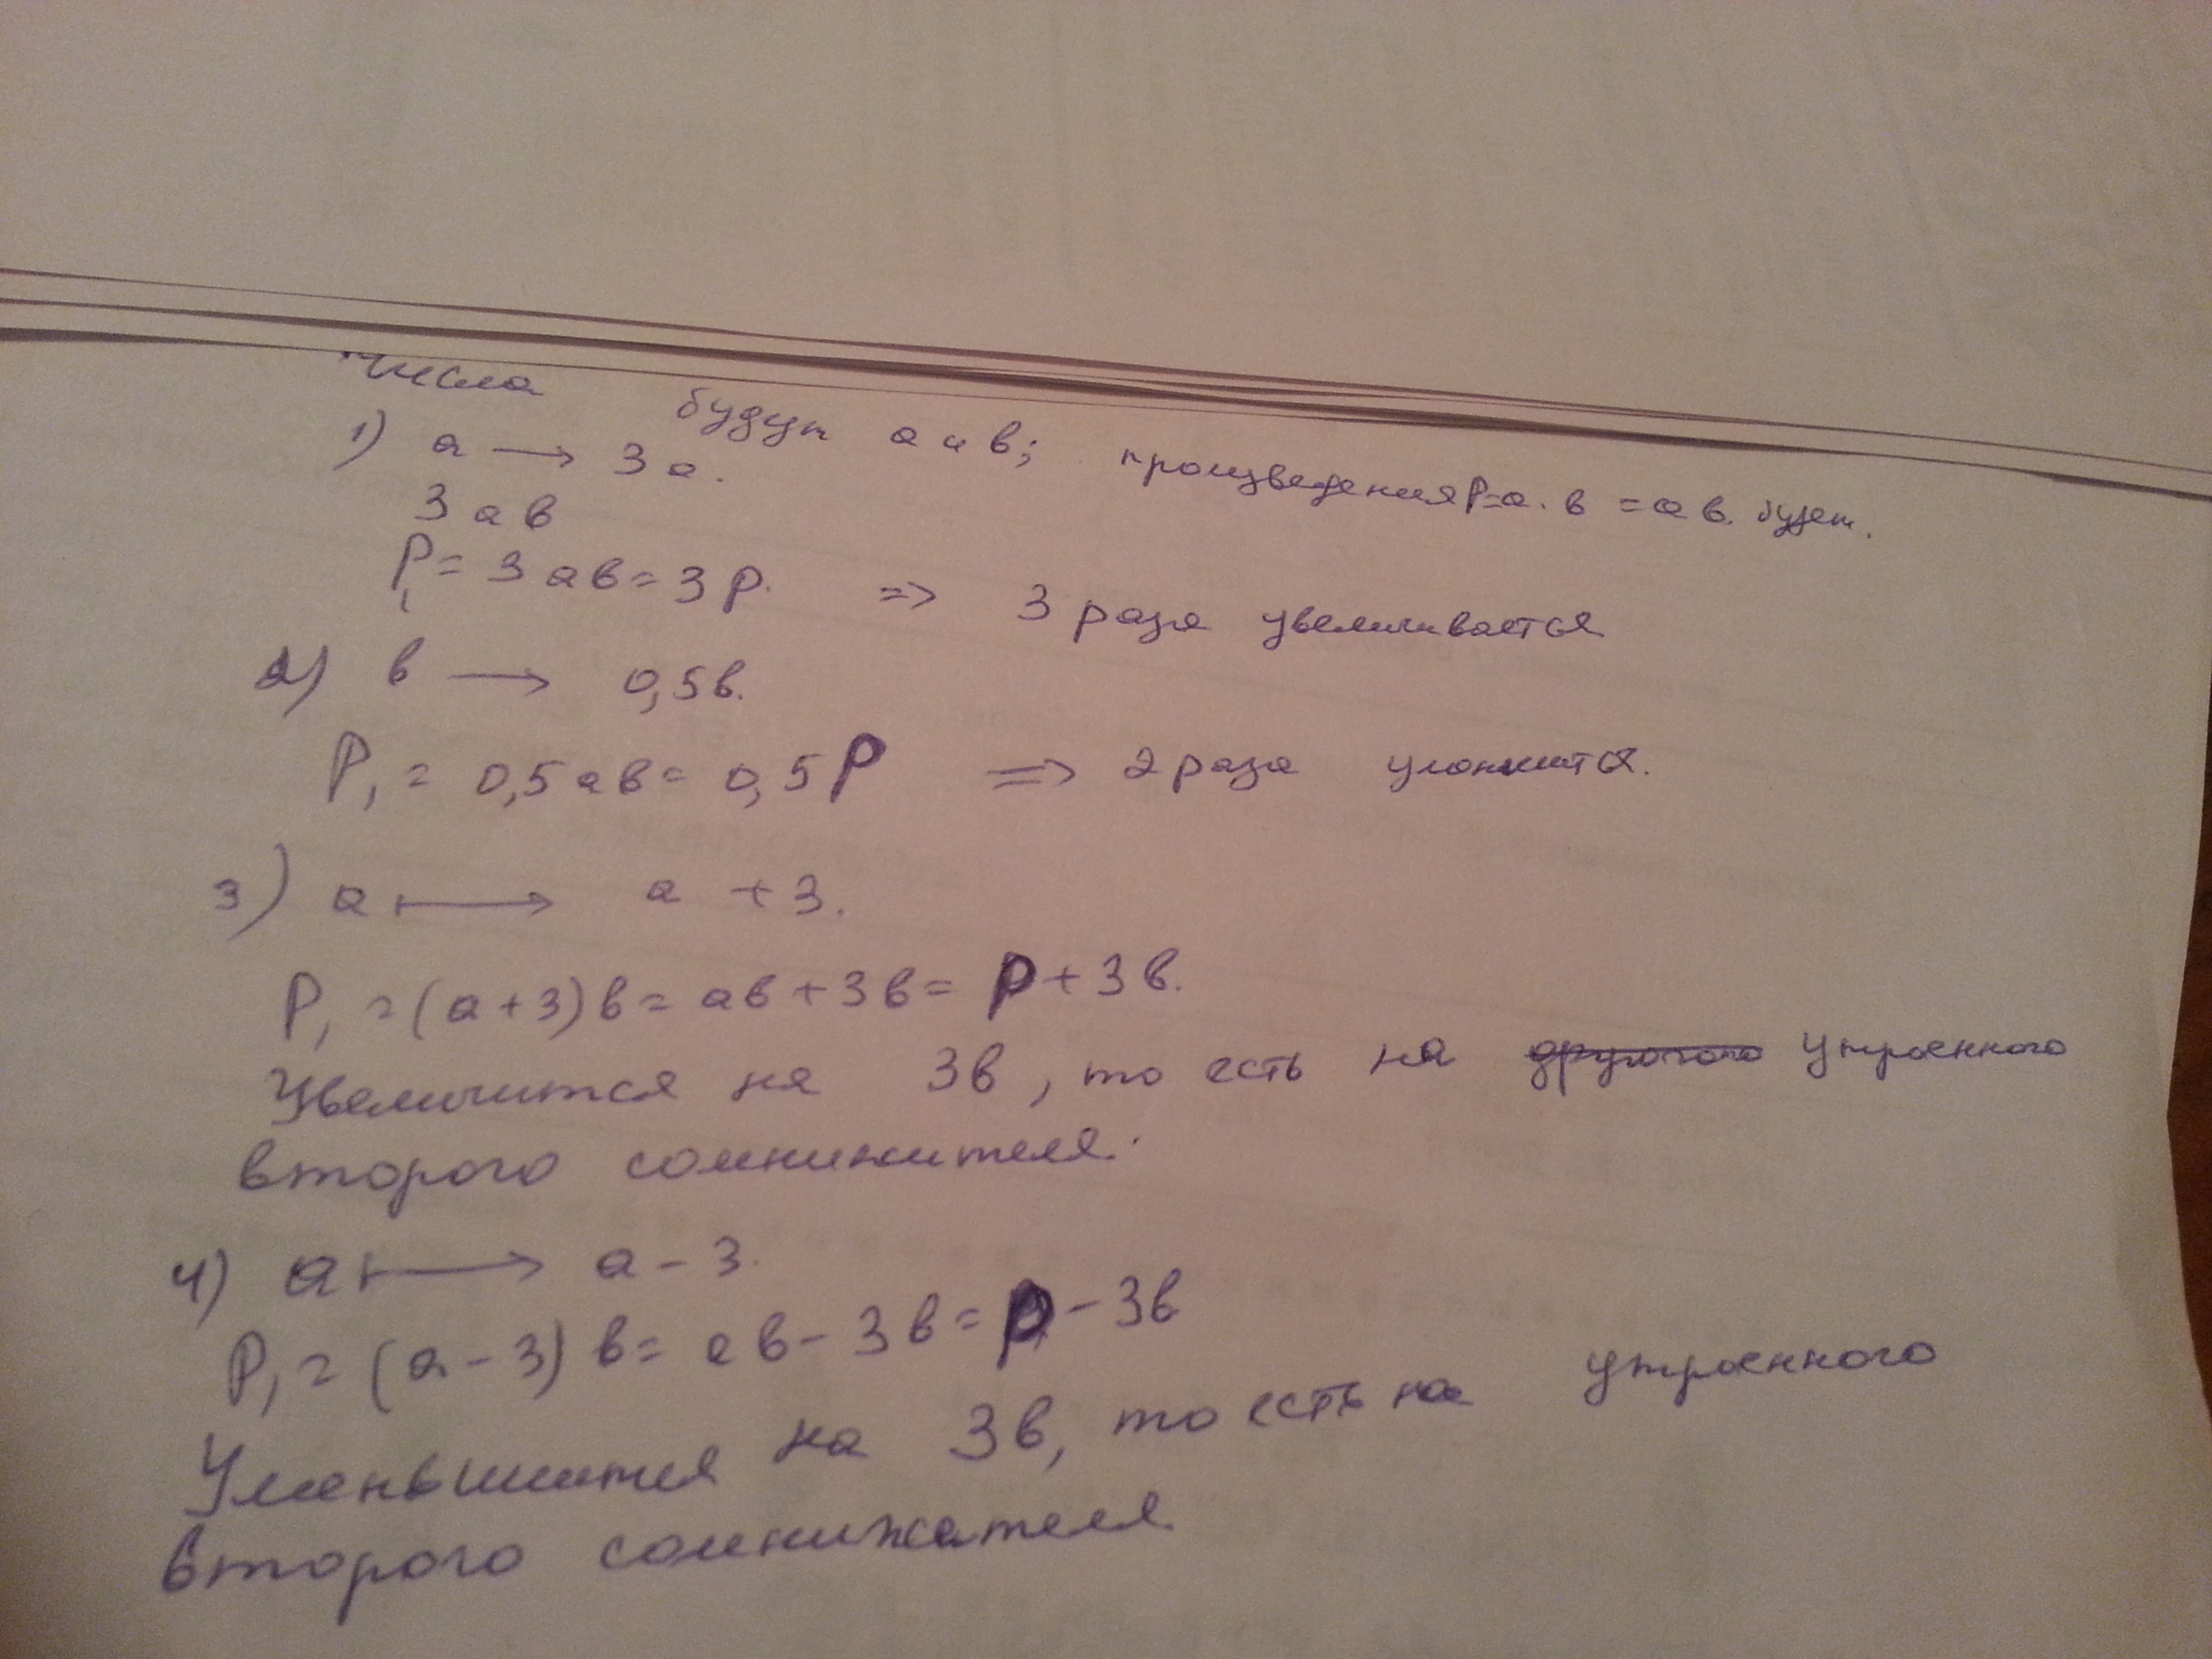 Числа будут а и в; произведения P=а·в = ав. будет.
1) а → 3а.
3ав
P₁ = 3ав = 3P. => 3 раза увеличивается
2) в → 0,5в.
P₁ = 0,5ав = 0,5P => 2 раза
3) а ↦ а + 3.
P₁ = (а+3)в = ав + 3в = P + 3в.
Увеличится на 3в, то есть на другого утроенного
второго сомнижителя.
4) а ↦ а - 3.
P₁ = (а - 3) в = ав - 3в = P - 3в
Уменьшится на 3в, то есть на утроенного
второго сомнижателя